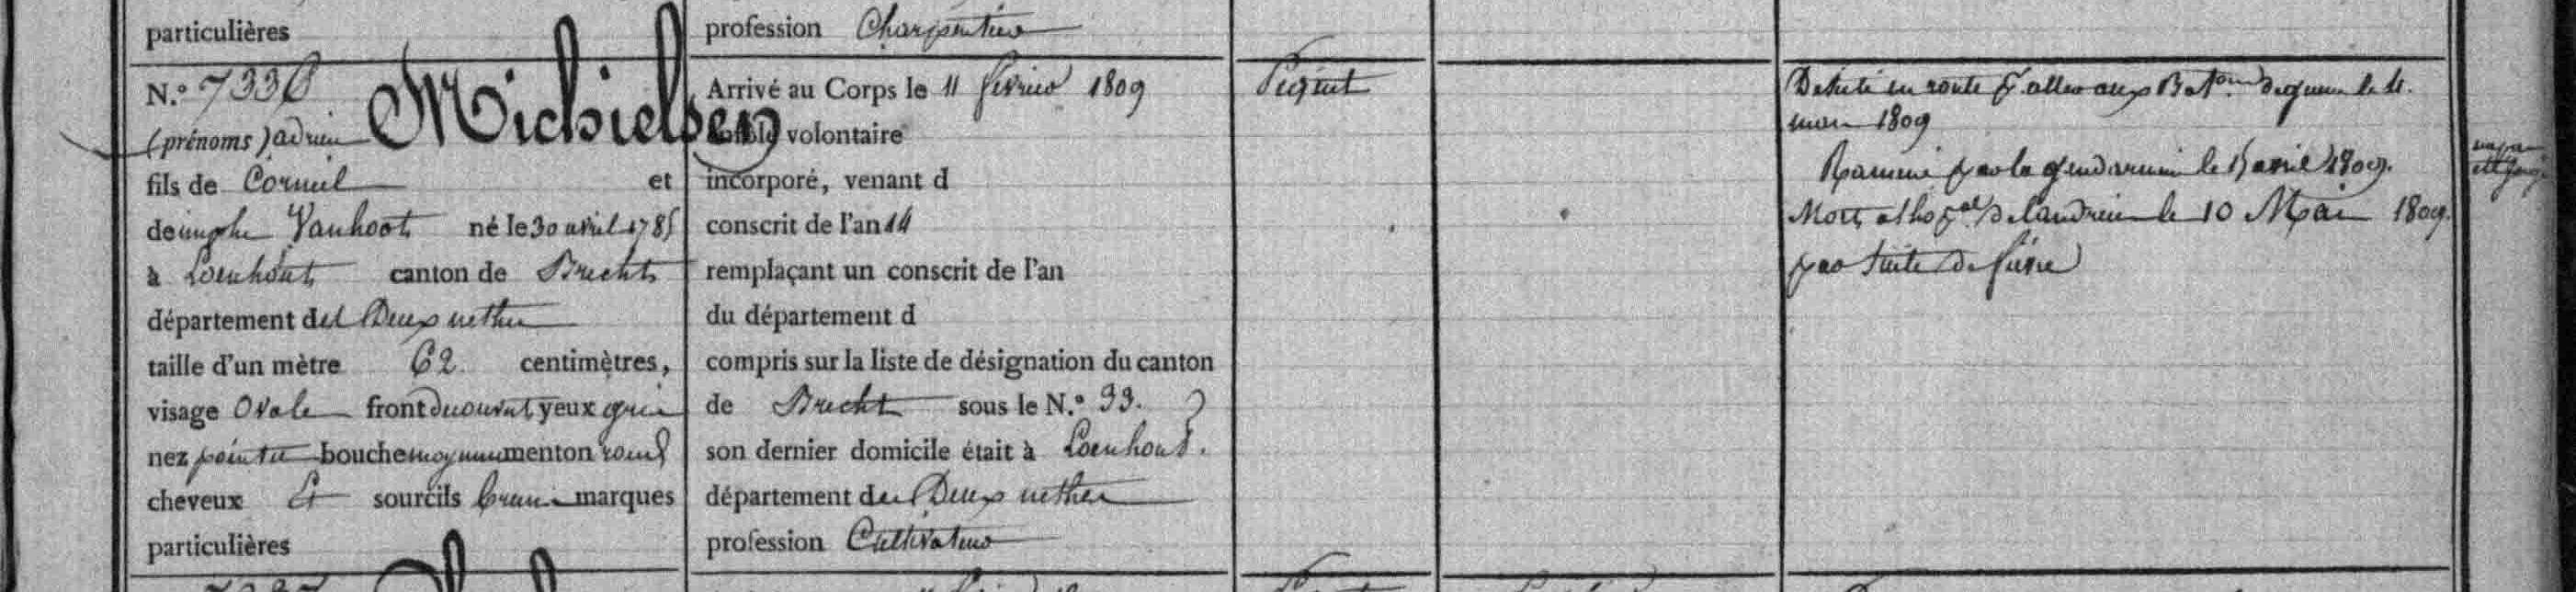 particulières
profession Charpentier
N.° 7336 Michielsen
(prénoms) adrien
fils de Corneil et
de Vanhoot né le 30 avril 1785
à Loenhout canton de Brecht
département des Deux nethes
taille d'un mètre 62 centimètres,
visage Ovale front decouvert yeux gris
nez pointu bouche moyenne menton rond
cheveux Et sourcils bruns marques
particulières
Arrivé au Corps le 11 fevrier 1809
volontaire
incorporé, venant d
conscrit de l'an 14
remplaçant un conscrit de l'an
du département d
compris sur la liste de désignation du canton
de Brecht sous le N.° 33.
son dernier domicile était à Loenhout.
département des Deux nethes
profession Cultivateur
Déserté en route pr. aller aux Bat.ons de guerre le 11.
mars 1809
Ramené par la gendarmerie le 15 avril 1809.
Mort a l'hopal. de le 10 Mai 1809.
par suite de fievre